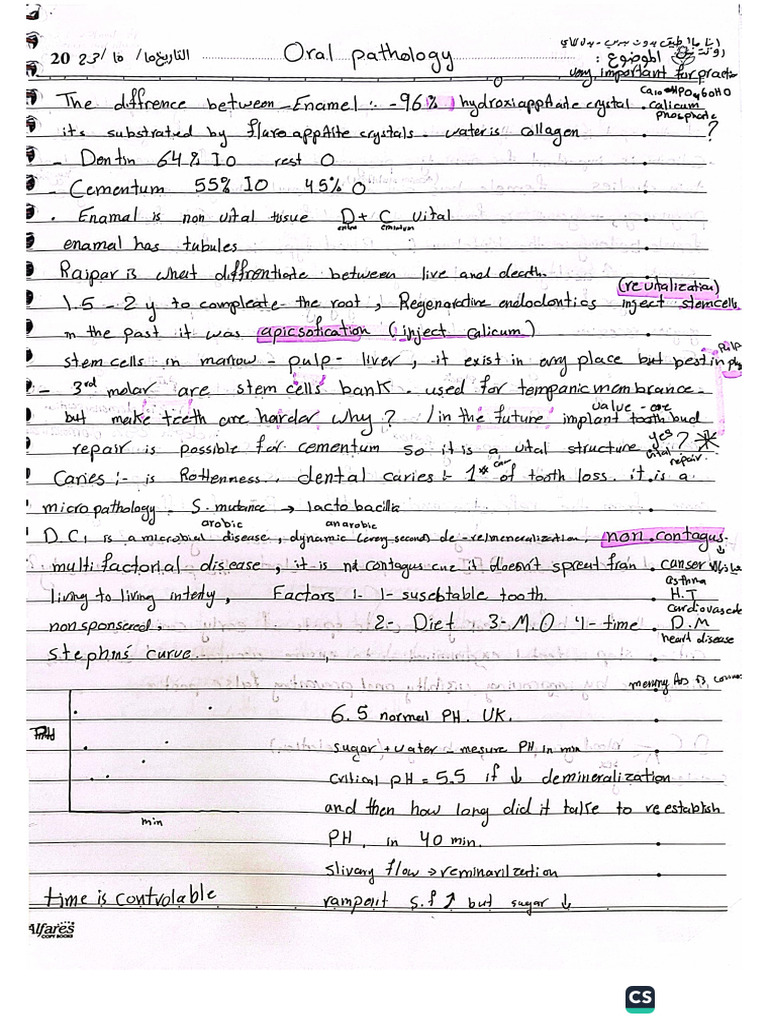 2023/10/10 التاريخ
Oral pathology
الموضوع :
very important for practe
The diffrence between Enamel :- -96% hydroxiappatate crystal . calicum
phosphate
its substrated by flaro appatite crystals - water is collagen ?
- Dentin 64% IO rest O
- Cementum 55% IO 45% O
. Enamal is non vital tissue D + C vital
enamal has tubules
Raipar is what diffrentiate between live and death.
(revitalization)
1.5 - 2 y to compleate the root , Regenarative endodontics inject stemcells
in the past it was apicsofication ( inject calicum)
stem cells in marrow - pulp - liver , it exist in any place but best in
- 3rd molar are stem cells bank . used for tempanic membrance.
value
but make teeth are harder why? / in the future implant tooth bud
repair is possible for cementum so it is a vital structure yes ?
vital repair.
Caries :- is Rottenness . dental caries :- 1st of tooth loss. it is a
micropathology - S. mutance → lacto bacilia
arobic anarobic
D.C, is a microbial disease , dynamic (every second) de - reimeneralization, non contagus
multi factorial disease , it is not contagus it doesn't spreat fran canser
asthma
living to living intedy , Factors :- 1- suseptable tooth H.T
cardiovascde
non sponsered , 2- Diet , 3- M.O 4- time D.M
heart disease
stephns' curve
6.5 normal PH . UK.
sugar + water - mesure PH in min
critical pH = 5.5 if ↓ demineralization
and then how long did it take to re establish
min
PH , in 40 min.
slivary flow → reminarilzation
time is controlable
rampent s.f ↑ but sugar ↓
Alfares
COPY BOOKS
CS